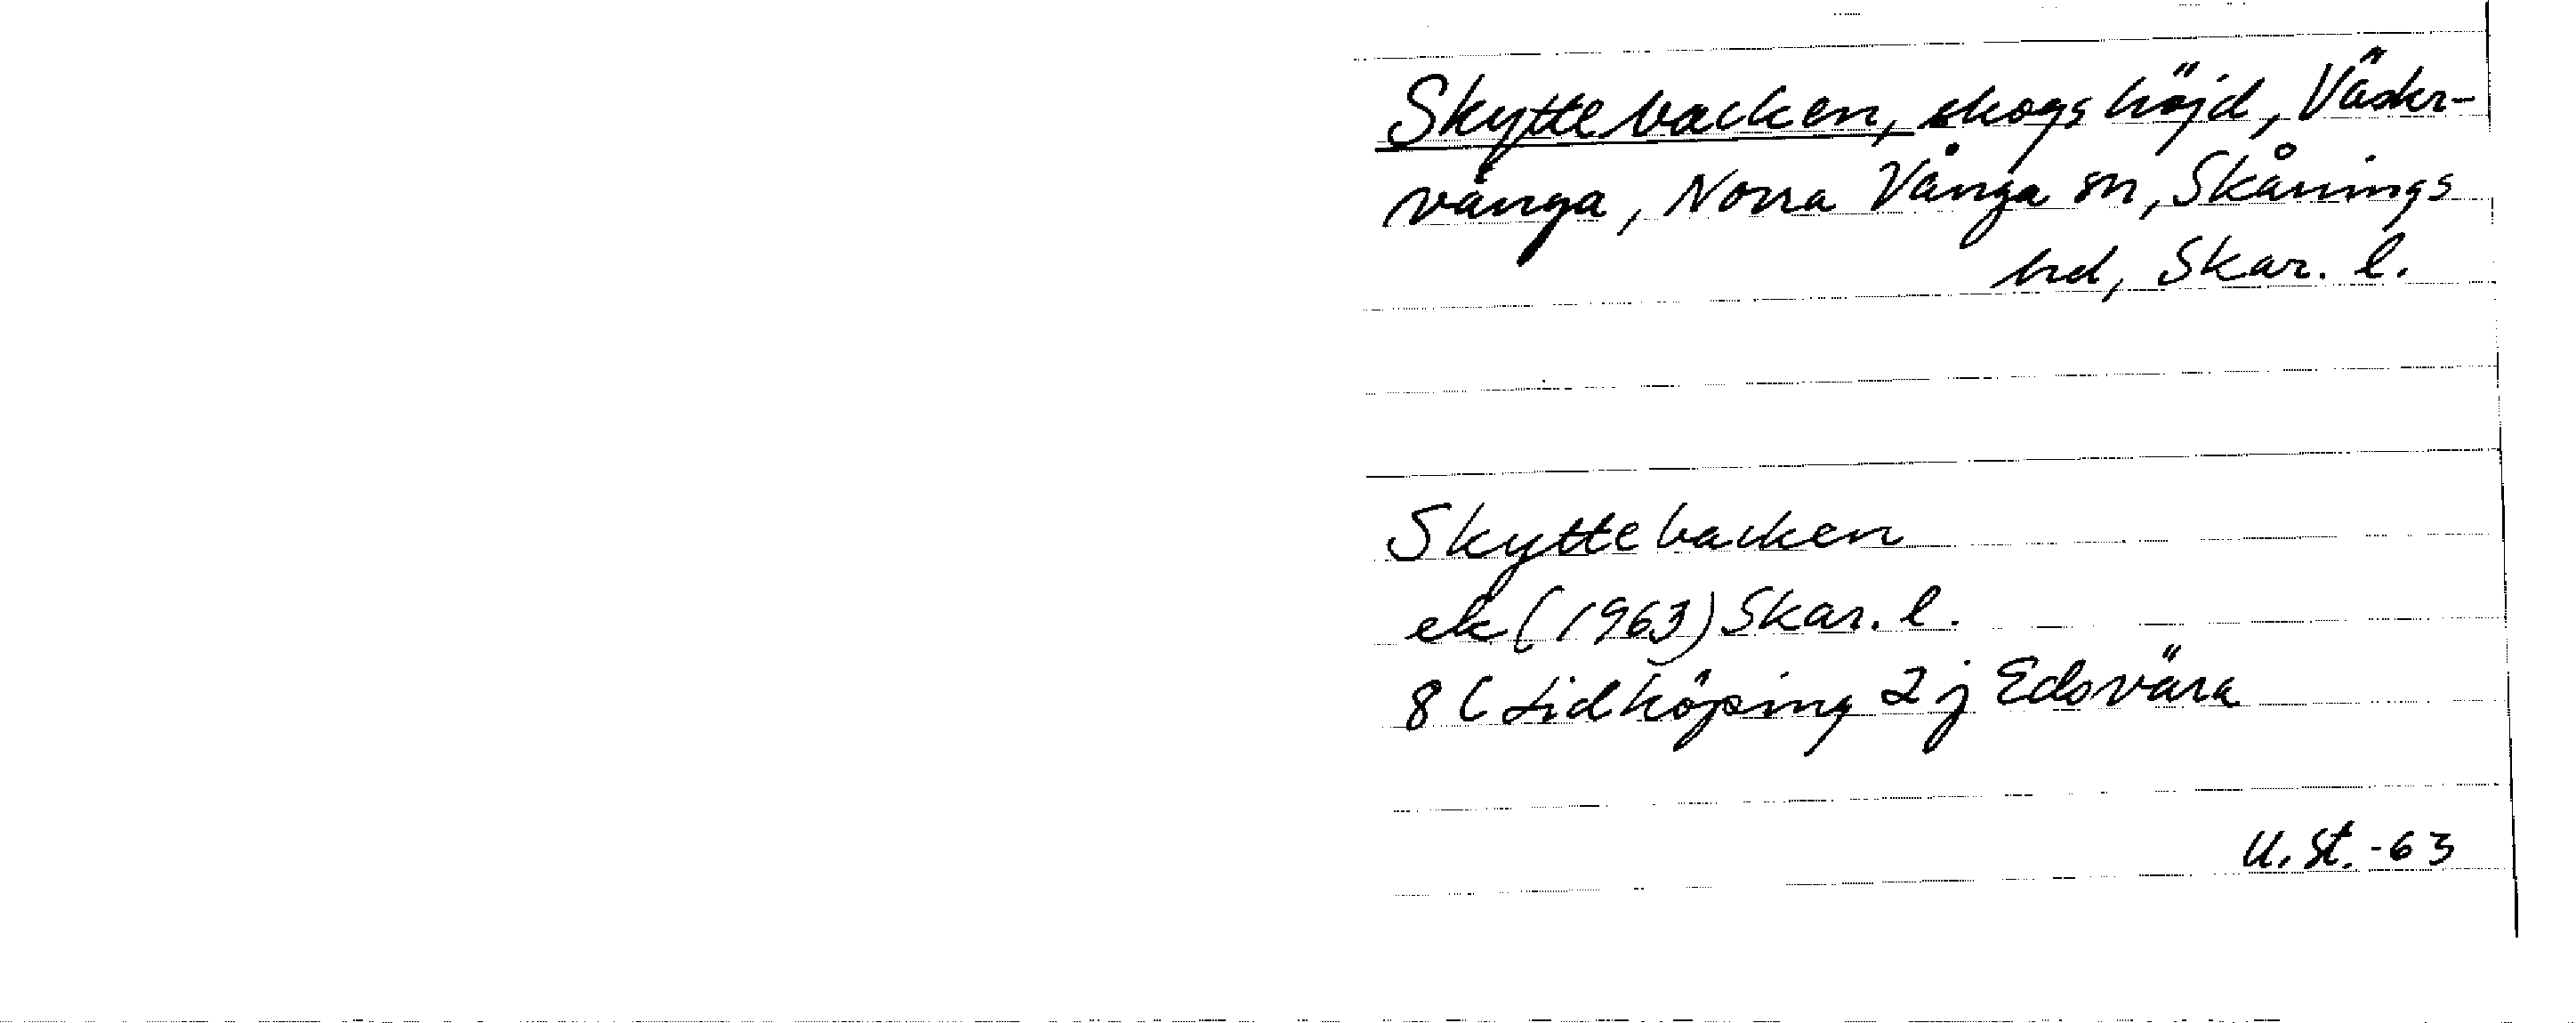 Skyttebacken, skogshöjd, Väster-
vånga, Norra Vånga sn, Skånings
hd, Skar. l.
Skyttebacken
ek (1963) Skar. l.
8 C Lidköping 2 j Edsvära
U. St. -63